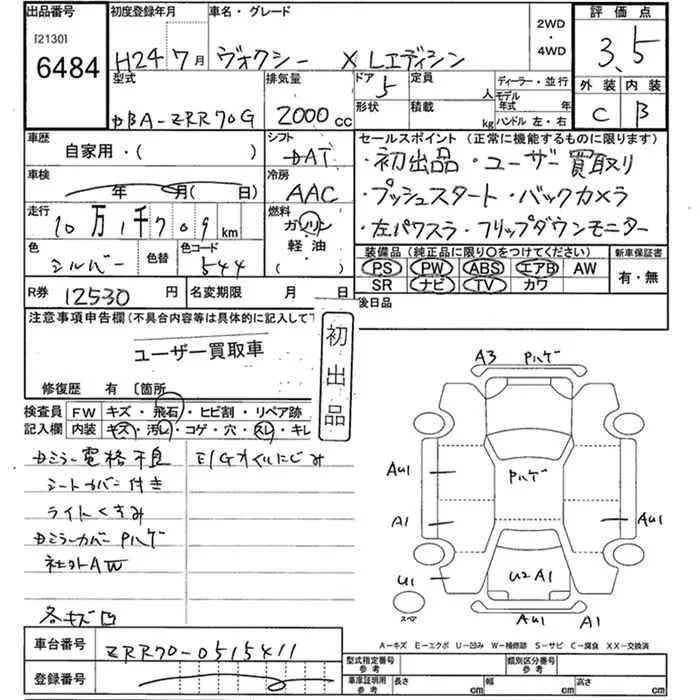 出品番号 初度登録年月 車名・グレード 2WD・4WD 評価点
[2130]
6484 H24 7月 ヴォクシー X Lエディシン 3.5
型式 排気量 ドア 定員 人 ディーラー・並行 外装 内装
DBA-ZRR70G 2000cc 5 形状 積載 kg モデル年式 年 ハンドル 左・右 C B
車歴 シフト セールスポイント (正常に機能するものに限ります)
自家用・( ) DAT ・初出品・ユーザー買取り
車検 年 月( 日) 冷房 AAC ・プッシュスタート・バックカメラ
走行 10万1千709km 燃料 ガソリン ・左パワスラ・フリップダウンモニター
色 色替 色コード 軽油 装備品 (純正品に限り〇をつけてください) 新車保証書
シルバー 544 ( ) PS PW ABS エアB AW 有・無
R券 12530円 名変期限 月 日 SR ナビ TV カワ
後日品
注意事項申告欄(不具合内容等は具体的に記入して下
ユーザー買取車
初出品
修復歴 有 〔箇所
検査員 FW キズ・飛石・ヒビ割・リペア跡
記入欄 内装 キズ・汚レ・コゲ・穴・スレ・キレ
ドミラー電格不良 E/Gオイルにじみ
シートカバー付き
ライトくすみ
ドミラーカバーPハゲ
社外AW
各キズ凹
A3 Pハゲ
AU1 Pハゲ
A1 AU1
U1 U2A1
スペア AU1 A1
A-キズ E-エクボ U-凹み W-補修跡 S-サビ C-腐食 XX-交換済
車台番号 ZRR70-0515411
登録番号
型式指定番号 参考 類別区分番号 参考
車庫証明用 参考 長さ cm 幅 cm 高さ cm